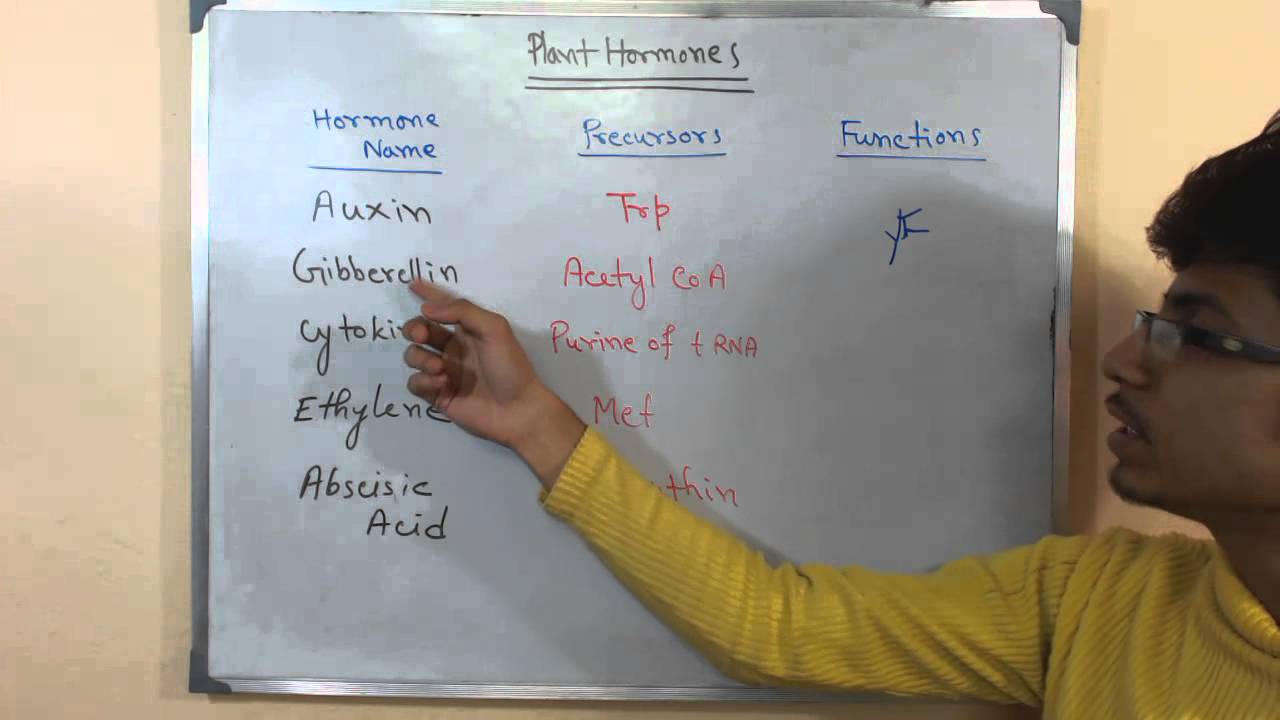 Plant Hormones
Hormone Name
Precursors
Functions
Auxin
Trp
Gibberellin
Acetyl CoA
Cytoki
Purine of tRNA
Ethylene
Met
Abscisic
thin
Acid